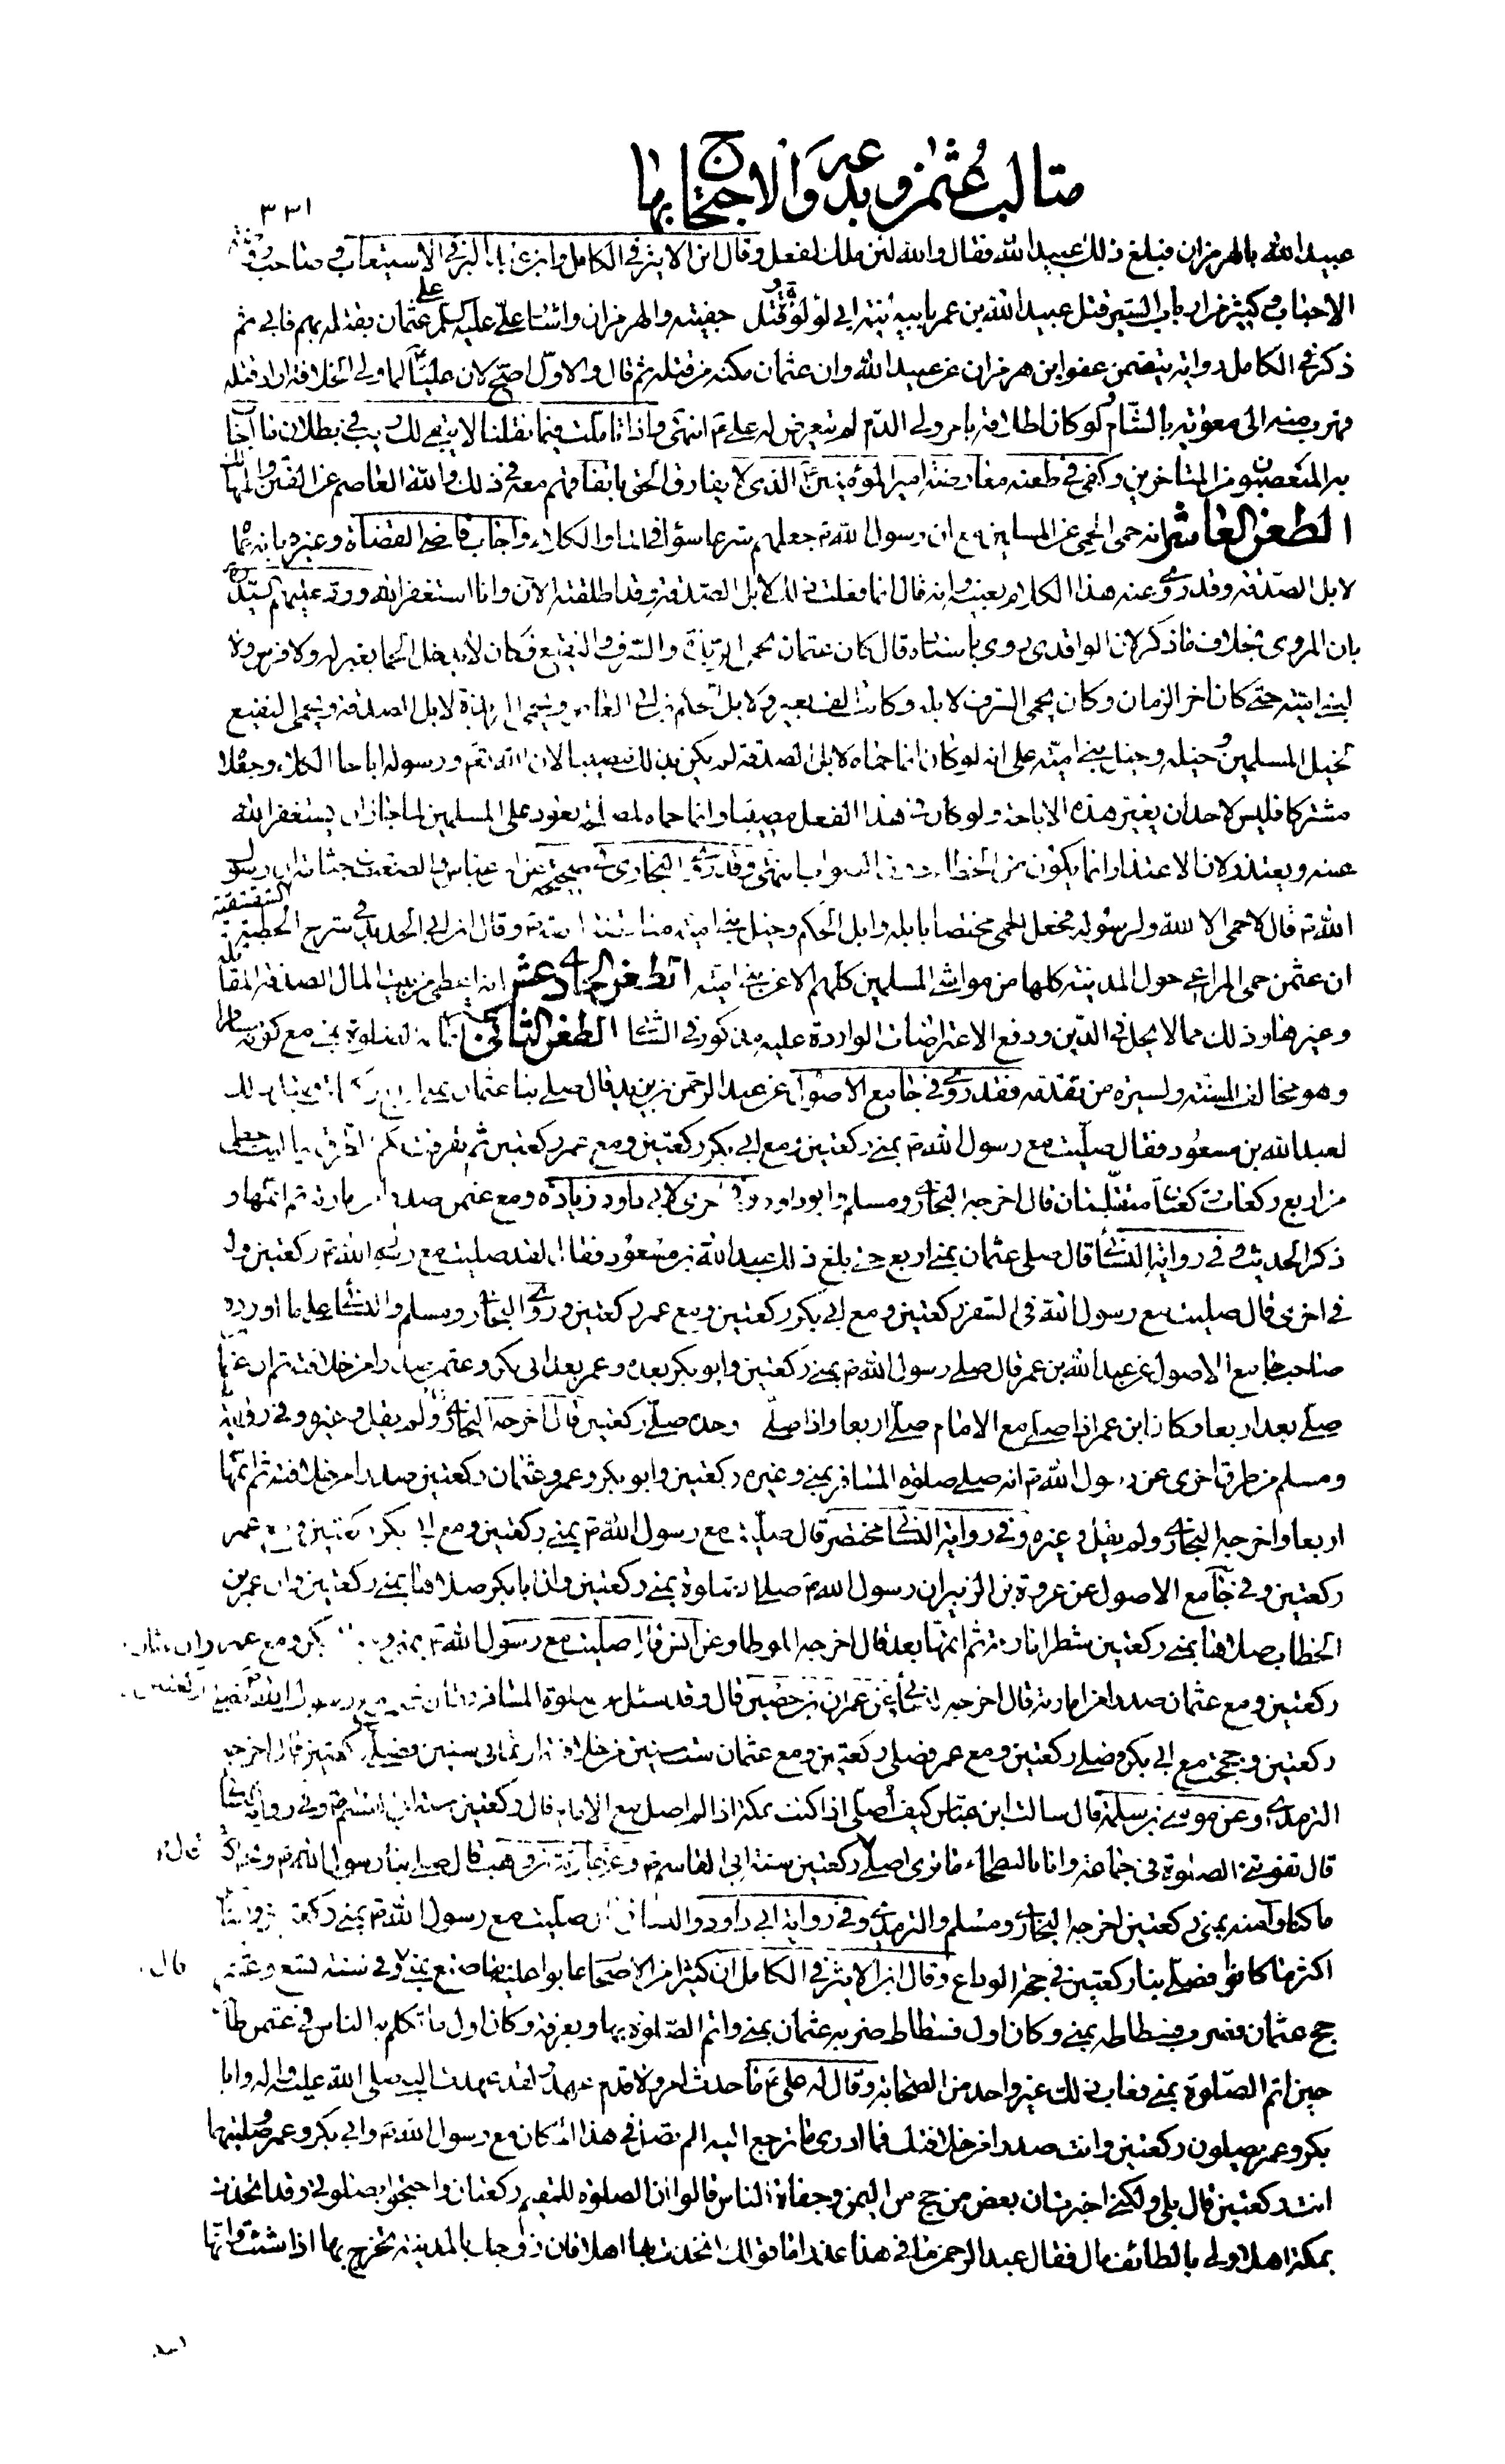 مثالب عثمن وبدعه والاحتجاج بها
٣٣١
عبيد الله بالهرمزان فبلغ ذلك عبيد الله فقال والله لئن ملك لفعل وقال ابن الاثير في الكامل وابن عبد البر في الاستيعاب وصاحب روضة
الاحباب وكثير من ارباب السير قتل عبيد الله بن عمر بابيه ابنة ابي لؤلؤة وقتل جفينة والهرمزان واشار علي عليه السلم على عثمان بقتله بهم فابى ثم
ذكر في الكامل رواية يتضمن عفو ابن هرمزان عن عبيد الله وان عثمان مكنه من قتله ثم قال والاول اصح لان عليا لما ولي الخلافة اراد قتله
فهرب منه الى معوية بالشام ولو كان اطلاقه بامر ولي الدم لم يتعرض له علي ع انتهى واذا تاملت فيما نقلنا لا يبقى لك ريب في بطلان ما اجاب
به المتعصبون من المتاخرين وكفى في طعنه معارضة امير المؤمنين الذي لا يفارق الحق باتفاقهم معه في ذلك والله العاصم عن الفتن والمهالك
الطعن العاشر انه حمى الحمى عن المسلمين مع ان رسول الله ص جعلهم شرعا سواء في الماء والكلاء واجاب قاضي القضاة وغيره بانه حما
لابل الصدقة وقد روي عنه هذا الكلام بعينه وانه قال انما فعلت ذلك لابل الصدقة وقد اطلقته الآن وانا استغفر الله ورد عليهم السيد ره
بان المروي بخلاف ما ذكر لان الواقدي روى باسناده قال كان عثمان يحمي الربذة والشرف والنقيع فكان لا يدخل الحما بعير له ولا فرس ولا
لبني امية حتى كان آخر الزمان وكان يحمي الشرف لابله وكانت الف بعير ولابل الحكم بن ابي العاص ويحمي الربذة لابل الصدقة ويحمي النقيع
لخيل المسلمين وخيله وخيل بني امية على انه لو كان انما حماه لابل الصدقة لم يكن بذلك مصيبا لان الله تعم ورسوله اباحا الكلاء وجعلاه
مشتركا فليس لاحد ان يغير هذه الاباحة ولو كان في هذا الفعل مصيبا وانما حماه لمصلحة يعود على المسلمين لما جاز ان يستغفر الله
عنه ويعتذر لان الاعتذار انما يكون من الخطاء دون الصواب انتهى وقد روى البخاري في صحيحه عن ابن عباس والصعب بن جثامة ان رسول
الله ص قال لا حمى الا لله ولرسوله فجعل الحمى مختصا بابله وابل الحكم وخيل بني امية وقال ابن ابي الحديد في شرح الخطبة الشقشقية
ان عثمن حمى المراعي حول المدينة كلها من مواشي المسلمين كلهم الا عن بني امية الطعن الحادي عشر انه اعطى من بيت المال الصدقة المقاتلة
وغيرها وذلك مما لا يحل في الدين ودفع الاعتراضات الواردة عليه مذكور في الشافي الطعن الثاني عشر انه اتم الصلوة بمنى مع كونه مسافرا
وهو مخالف للسنة ولسيرة من تقدمه فقد روي في جامع الاصول عن عبد الرحمن بن يزيد قال صلى بنا عثمان بمنى اربع ركعات فقيل ذلك
لعبد الله بن مسعود فقال صليت مع رسول الله ص بمنى ركعتين ومع ابي بكر ركعتين ومع عمر ركعتين ثم تفرقت بكم الطرق يا ليت حظي
من اربع ركعات ركعتان متقبلتان قال اخرجه البخاري ومسلم وابو داود وفي اخرى لابي داود زيادة ومع عثمن صدرا من امارته ثم اتمها و
ذكر الحديث وفي رواية النسائي قال صلى عثمان بمنى اربع حتى بلغ ذلك عبد الله بن مسعود فقال لقد صليت مع رسول الله ص ركعتين وله
في اخرى قال صليت مع رسول الله في السفر ركعتين ومع ابي بكر ركعتين ومع عمر ركعتين وروى البخاري ومسلم والنسائي على ما اورده
صاحب جامع الاصول عن عبيد الله بن عمر قال صلى رسول الله ص بمنى ركعتين وابو بكر بعده وعمر بعد ابي بكر وعثمن صدرا من خلافته ثم ان عثمان
صلى بعد اربعا وكان ابن عمر اذا صلى مع الامام صلى اربعا واذا صلى وحده صلى ركعتين قال اخرجه البخاري ولم يقل وغيره وفي رواية
ومسلم من طرق اخرى عن رسول الله ص انه صلى صلوة المسافر بمنى وغيره ركعتين وابو بكر وعمر وعثمان ركعتين صدرا من خلافته ثم اتمها
اربعا واخرجه البخاري ولم يقل وغيره وفي رواية النسائي مختصر قال صليت مع رسول الله ص بمنى ركعتين ومع ابي بكر ركعتين ومع عمر
ركعتين وفي جامع الاصول عن عروة بن الزبير ان رسول الله ص صلى الصلوة بمنى ركعتين وان ابا بكر صلاها بمنى ركعتين وان عمر بن
الخطاب صلاها بمنى ركعتين وان عثمان صلاها بمنى ركعتين شطر امارته ثم اتمها بعد قال اخرجه الموطا وعن انس قال صليت مع رسول الله ص بمنى ومع ابي بكر ومع عمر ركعتين
ركعتين ومع عثمان صدرا من امارته قال اخرجه النسائي عن عمران بن حصين قال وقد سئل عن صلوة المسافر فقال حججت مع رسول الله ص فصلى
ركعتين وحججت مع ابي بكر وصلى ركعتين ومع عمر فصلى ركعتين ومع عثمان ست سنين من خلافته او ثماني سنين وصلى ركعتين قال اخرجه
الترمذي وعن موسى بن سلمة قال سالت ابن عباس كيف اصلي اذا كنت بمكة اذا لم اصل مع الامام قال ركعتين سنة ابي القاسم ص وفي رواية النسائي
قال تفوتني الصلوة في جماعة وانا بالبطحاء ما ترى اصلي قال ركعتين سنة ابي القاسم ص وعن حارثة بن وهب قال صلى بنا رسول الله ص ونحن اكثر
ما كنا وآمنه بمنى ركعتين اخرجه البخاري ومسلم والترمذي وفي رواية ابي داود والنسائي قال صليت مع رسول الله ص بمنى ركعتين والناس
اكثر ما كانوا فصلى بنا ركعتين في حجة الوداع وقال ابن الاثير في الكامل ان كثيرا من الاصحاب عابوا عليه ما صنع بمنى وفي سنة تسع وعشرين قال
حج عثمان فضرب فسطاطه بمنى وكان اول فسطاط ضربه عثمان بمنى واتم الصلوة بها وبعرفة وكان اول ما تكلم به الناس في عثمن ظاهرا
حين اتم الصلوة بمنى فعاب ذلك غير واحد من الصحابة وقال له علي ع ما حدث امر ولا قدم عهد ولقد عهدت النبي صلى الله عليه واله وابا
بكر وعمر يصلون ركعتين وانت صدرا من خلافتك فما ادري ما ترجع اليه الم تصل في هذا المكان مع رسول الله ص وابي بكر وعمر وصليتهما
انت ركعتين قال بلى ولكني اخبرت ان بعض من حج من اليمن وجفاة الناس قالوا ان الصلوة للمقيم ركعتان واحتجوا بصلوتي وقد اتخذت
بمكة اهلا ولي بالطائف مال فقال عبد الرحمن ما في هذا عذر اما قولك اتخذت بها اهلا فان زوجتك بالمدينة تخرج بها اذا شئت وانما